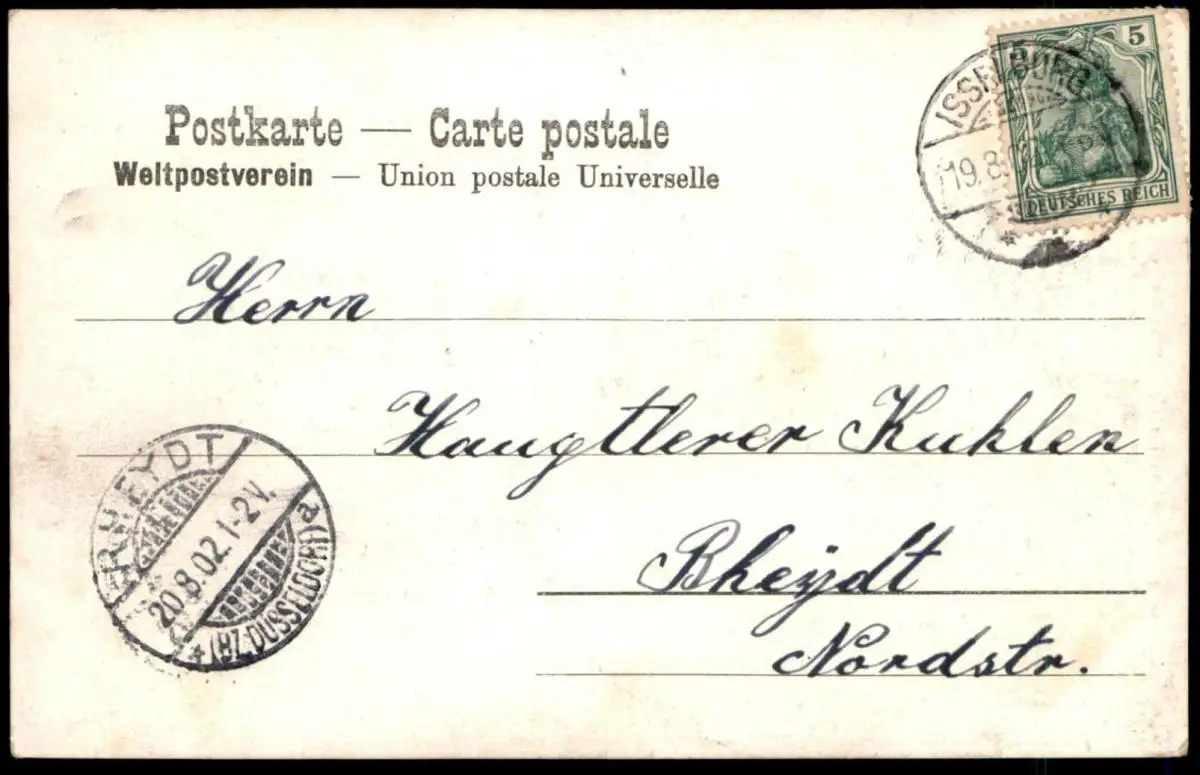 Postkarte — Carte postale
Weltpostverein — Union postale Universelle
5 5
DEUTSCHES REICH
ISSELBURG
19.8.02
Herrn
Haugtlerer Kuhlen
Rheydt
Nordstr.
RHEYDT
20.8.02.1-2V.
* (BZ.DÜSSELDORF) a